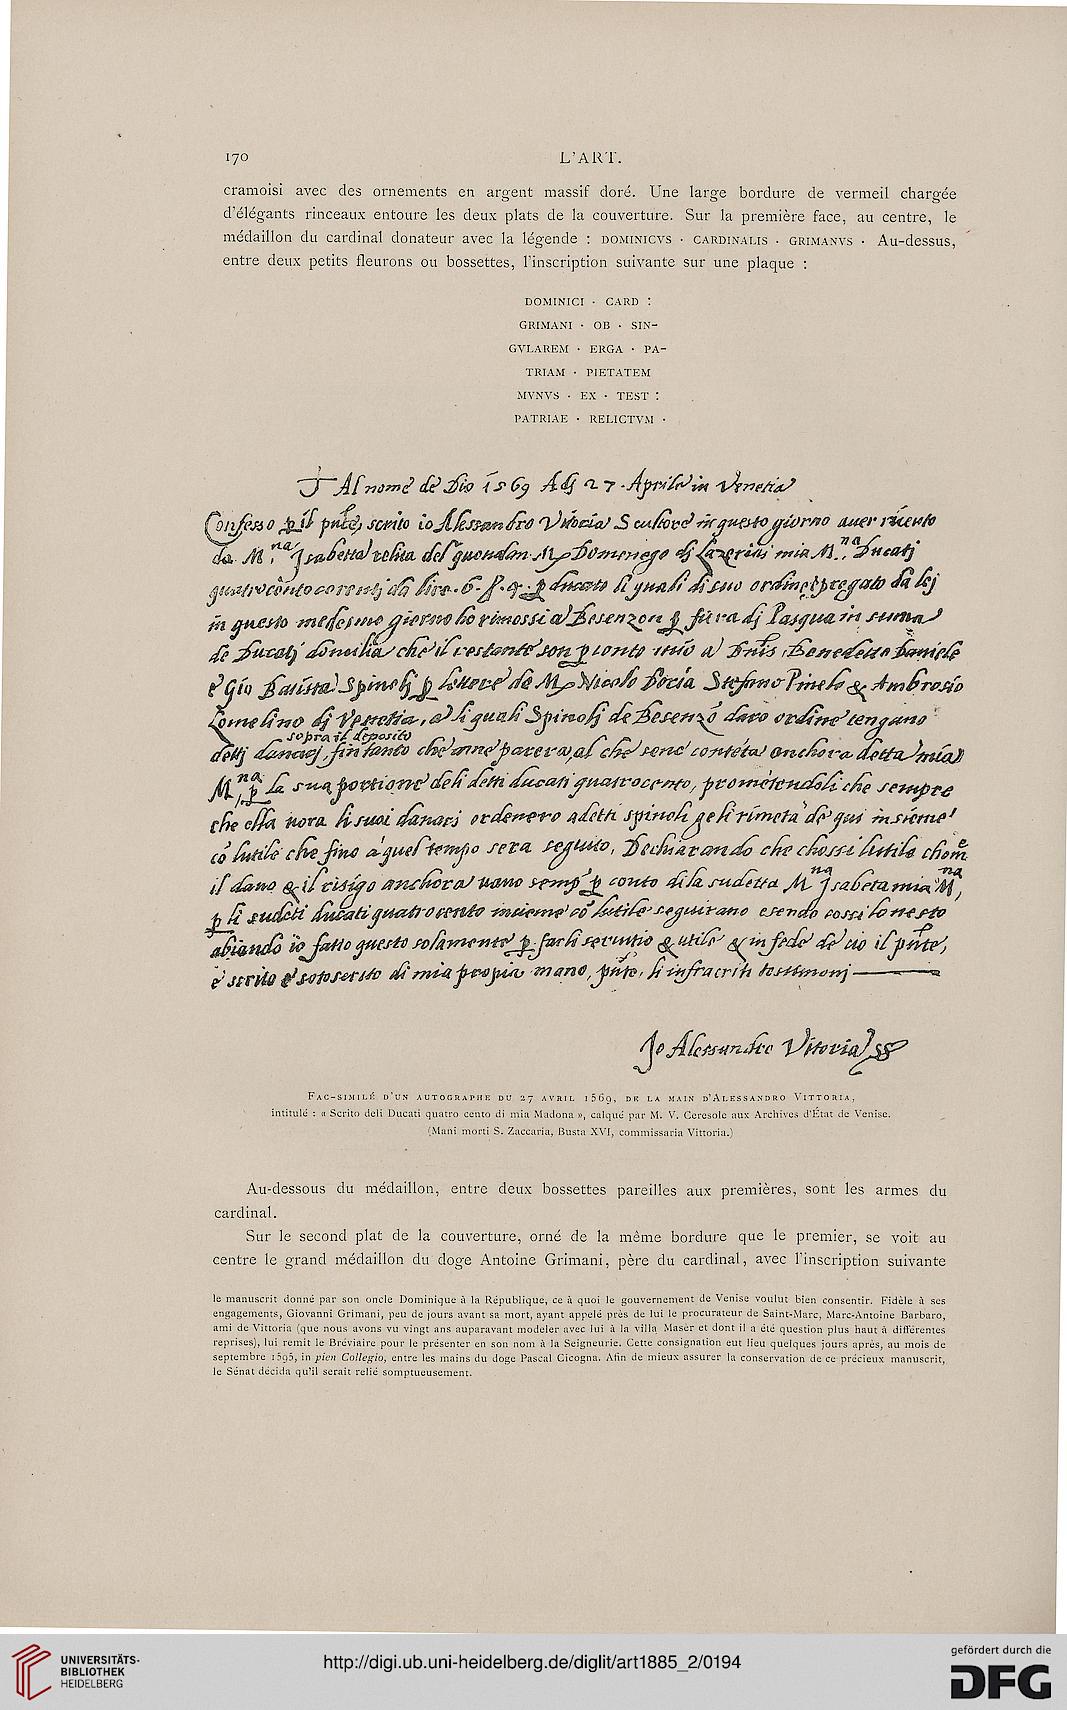 170
L'ART.
cramoisi avec des ornements en argent massif doré. Une large bordure de vermeil chargée
d'élégants rinceaux entoure les deux plats de la couverture. Sur la première face, au centre, le
médaillon du cardinal donateur avec la légende : DOMINICVS · CARDINALIS · GRIMANVS · Au-dessus,
entre deux petits fleurons ou bossettes, l'inscription suivante sur une plaque :
DOMINICI · CARD :
GRIMANI · OB · SIN-
GVLAREM · ERGA · PA-
TRIAM · PIETATEM
MVNVS · EX · TEST :
PATRIAE · RELICTVM ·
Al nome de Dio 1569 Adj 27 · Aprile in Venetia
Confesso p il pnte, scrito io Alessandro Vitoria Scultore in questo giorno auer riceuto
da M.na Isabetta relita del quondam M. Domenego dj Lazerini mia M.na Ducatj
quatrocento correntj da lire · 6 · ducato li quali di suo ordine pregato da lej
in questo medesmo giorno ho rimossi a Besenzon p fiera dj Pasqua in suma
de Ducatj domilia che il restante son p conto mio a Benedetto Daniele
e Gio Batista Spinolj p letere de M. Nicolo Doria Stefano Pinelo & Ambrosio
Lomelino dj Venetia, a li quali Spinolj de Besenzo daro ordine tengano
sopra il deposito
detti danarj, fin tanto che anne parera, al che sene conteta anchora detta mia
M.na p la sua portione deli detti ducati quatrocento, prometendoli che sempre
che ella vora li suoi danarj ordenero a detti spinoli ge li rimeta de qui insieme
co lutile che fino a quel tempo sera seguito, Dechiarando che chossi lutile chome
il dano & il risigo anchora vano semp p conto di la sudetta M.na Isabeta mia M.na,
p li sudeti ducati quatrocento insieme co lutile seguirano esendo cossi lonesto
abiando io fatto questo solamente p farli seruitio & utile & in fede de cio il pnte,
e scrito e sotoscrito di mia propia mano, pnte, li infracriti testimonj
Io Alessandro Vitoria
FAC-SIMILÉ D'UN AUTOGRAPHE DU 27 AVRIL 1569, DE LA MAIN D'ALESSANDRO VITTORIA,
intitulé : « Scrito deli Ducati quatro cento di mia Madona », calqué par M. V. Ceresole aux Archives d'État de Venise.
(Mani morti S. Zaccaria, Busta XVI, commissaria Vittoria.)
Au-dessous du médaillon, entre deux bossettes pareilles aux premières, sont les armes du
cardinal.
Sur le second plat de la couverture, orné de la même bordure que le premier, se voit au
centre le grand médaillon du doge Antoine Grimani, père du cardinal, avec l'inscription suivante
le manuscrit donné par son oncle Dominique à la République, ce à quoi le gouvernement de Venise voulut bien consentir. Fidèle à ses
engagements, Giovanni Grimani, peu de jours avant sa mort, ayant appelé près de lui le procurateur de Saint-Marc, Marc-Antoine Barbaro,
ami de Vittoria (que nous avons vu vingt ans auparavant modeler avec lui à la villa Masèr et dont il a été question plus haut à différentes
reprises), lui remit le Bréviaire pour le présenter en son nom à la Seigneurie. Cette consignation eut lieu quelques jours après, au mois de
septembre 1595, in pien Collegio, entre les mains du doge Pascal Cicogna. Afin de mieux assurer la conservation de ce précieux manuscrit,
le Sénat décida qu'il serait relié somptueusement.
UNIVERSITÄTS-
BIBLIOTHEK
HEIDELBERG
http://digi.ub.uni-heidelberg.de/diglit/art1885_2/0194
gefördert durch die
DFG